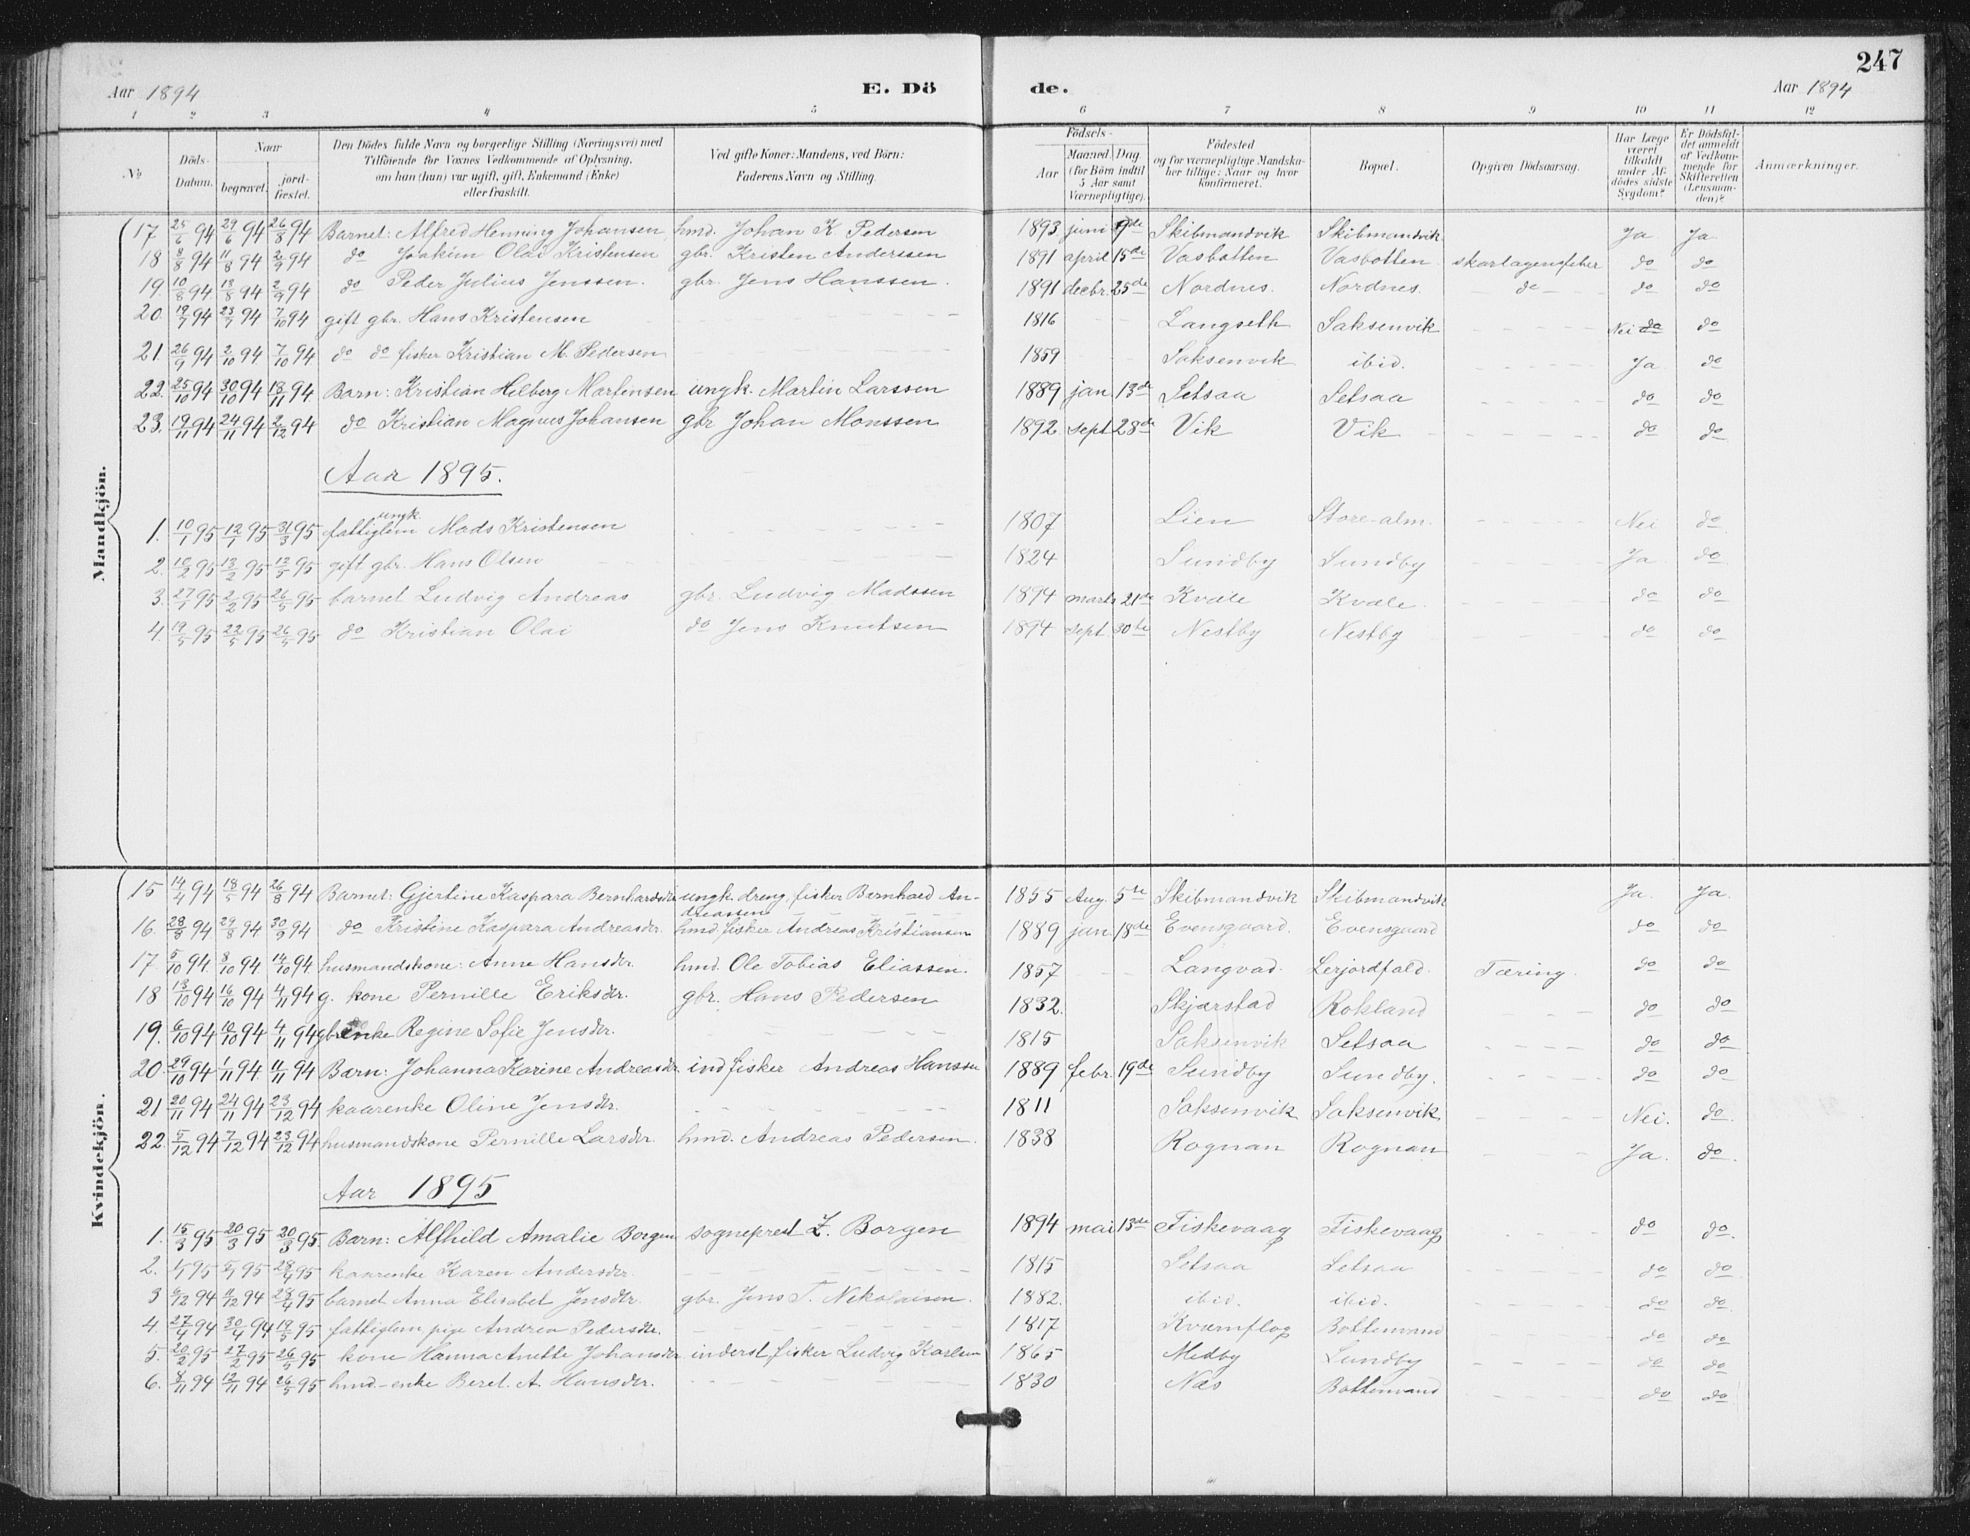 247
Aar 1894 E. Dö de. Aar 1894
1 2 3 4 5 6 7 8 9 10 11 12
No Döds-Datum. Naar begravet. jord-fæstet. Den Dödes fulde Navn og borgerlige Stilling (Næringsvei) med Tilföiende for Voxnes Vedkommende af Oplysning, om han (hun) var ugift, gift, Enkemand (Enke) eller fraskilt. Ved gifte Koner: Mandens, ved Börn: Faderens Navn og Stilling. Födsels- Aar Maaned Dag (for Börn indtil 5 Aar samt Værnepligtige). Födested og for værnepligtige Mandskaber tillige: Naar og hvor konfirmeret. Bopæl. Opgiven Dödsaarsag. Har Læge været tilkaldt under Afdödes sidste Sygdom? Er Dödsfaldet anmeldt af Vedkommende for Skifteretten (Lensmanden)? Anmærkninger.
Mandkjön.
17 25/6 94 29/6 94 26/8 94 Barnet: Alfred Henning Johansen hmd. Johan K. Pedersen 1893 juni 9de Skibmandvik Skibmandvik Ja Ja
18 8/8 94 11/8 94 2/9 94 do Joakim Olai Kristensen gbr. Kristen Anderssen 1891 april 15de Vasbotten Vasbotten skarlagensfeber do do
19. 10/8 94 13/8 94 2/9 94 do Peder Julius Jenssen. gbr. Jens Hanssen. 1891 decbr. 25de Nordnes. Nordnes. - do - do do
20. 19/7 94 23/7 94 7/10 94 gift gbr. Hans Kristensen 1816 Langseth Saksenvik Nei do do
21 26/9 94 2/10 94 7/10 94 do do fisker Kristian M. Pedersen 1859 Saksenvik ibid. Ja do
22. 25/10 94 30/10 94 18/11 94 Barn: Kristian Helberg Martinsen ungk. Martin Larssen 1889 jan. 13de Setsaa Setsaa do do
23. 19/11 94 24/11 94 2/12 94 do Kristian Magnus Johansen gbr Johan Monssen 1892. sept. 28de Vik Vik do do
Aar 1895.
1. 10/1 95 12/1 95 31/3 95 fattiglem ungk Mads Kristensen 1807 Lien Storealm. Nei do
2. 10/2 95 13/2 95 12/5 95 gift gbr. Hans Olsen 1824 Sundby Sundby Ja do
3. 27/1 95 2/2 95 26/5 95 barnet Ludvig Andreas gbr. Ludvig Madssen 1894 marts 21de Kvæle Kvæle. do do
4. 19/5 95 22/5 95 26/5 95 do Kristian Olai do Jens Knutsen 1894 sept. 30te Nestby Nestby do do
Kvindekjön.
15 14/4 94 18/5 94 26/8 94 Barnet: Gjertine Kaspara Bernhardsdtr ungk. dreng, fisker Bernhard Andreassen 1855 Aug. 5te Skibmandvik Skibmandvik Ja. Ja.
16. 28/8 94 29/8 94 30/9 94 do Kristine Kaspara Andreasdtr. hmd. fisker Andreas Kristiansen 1889 jan. 18de Evensgaard. Evensgaard do do
17. 5/10 94 8/10 94 14/10 94 husmandskone: Anne Hansdtr. hmd. Ole Tobias Eliassen. 1857 Langvad. Lerjordfald. Tæring. do do
18 13/10 94 16/10 94 4/11 94 g. kone Pernille Eriksdtr. gbr. Hans Pedersen 1832. Skjærstad Rokland do do
19. 6/10 94 10/10 94 4/11 94 gbr enke Regine Sofie Jensdtr. 1815 Saksenvik Setsaa do do
20. 29/10 94 1/11 94 11/11 94 Barn: Johanna Karine Andreasdtr. ind fisker Andreas Hanssen 1889 febr. 19de Sundby Sundby. do do
21 20/11 94 24/11 94 23/12 94 kaarenke Oline Jensdtr. 1811 Saksenvik Saksenvik Nei. do.
22. 5/12 94 7/12 94 23/12 94 husmandskone Pernille Larsdtr. hmd. Andreas Pedersen. 1838 Rognan Rognan Ja. do.
Aar 1895
1. 15/3 95 20/3 95 20/3 95. Barn: Alfhild Amalie Borgen sogneprest Z. Borgen 1894 mai 13de Fiskevaag Fiskevaag do do.
2. 95 95 28/4 95 kaarenke Karen Andersdtr. 1815 Setsaa Setsaa do do
3 6/12 94 11/12 94 28/4 95 barnet Anna Elisabet Jensdtr. gbr. Jens T. Nikolaisen. 1882. ibid. ibid. do do
4. 27/4 94 30/4 94 19/5 95 fattiglem pige Andrea Pedersdtr. 1817 Kvarnflog Bottenvand do do
5. 20/2 95 27/2 95 26/5 95 kone Hanna Anette Johansdtr inderst fisker Ludvig Karlsen 1865 Medby Lundby do do
6. 8/11 94 12/11 94 26/5 95 hmd-enke Beret. A. Hansdtr. 1830 Næs Bottenvand do do